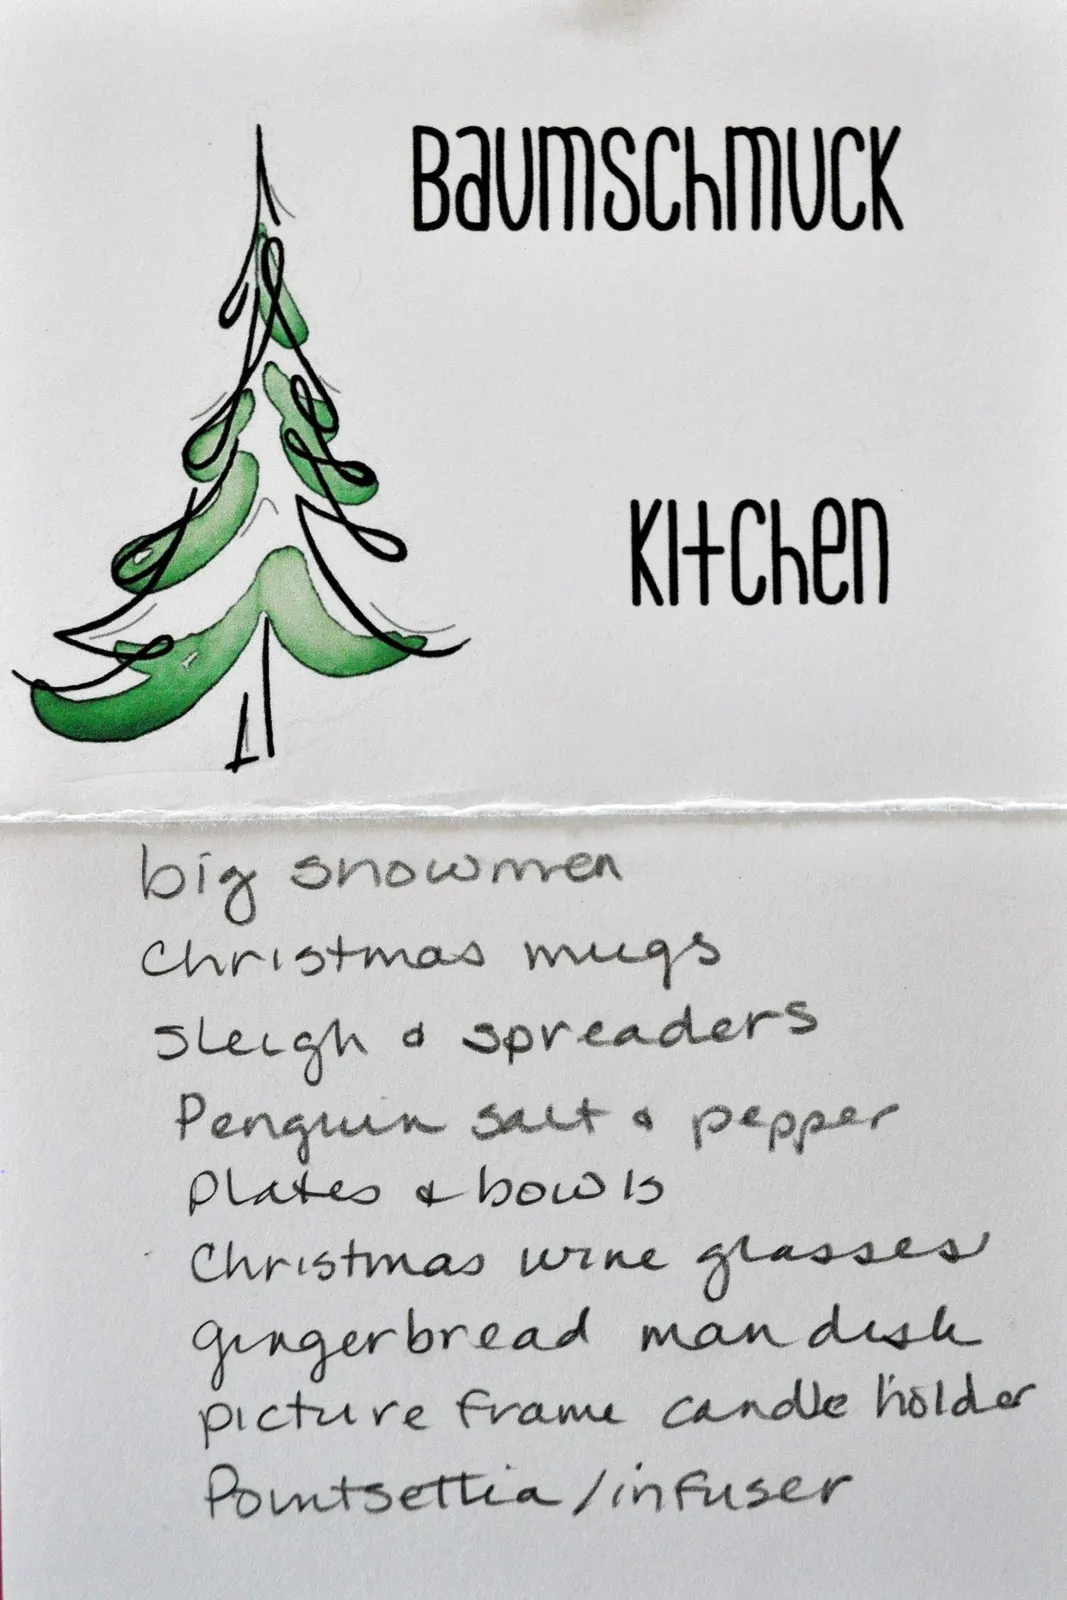 Baumschmuck
Kitchen
big snowmen
Christmas mugs
sleigh & spreaders
Penguin salt & pepper
plates & bowls
Christmas wine glasses
gingerbread man dish
picture frame candle holder
Pointsettia / infuser